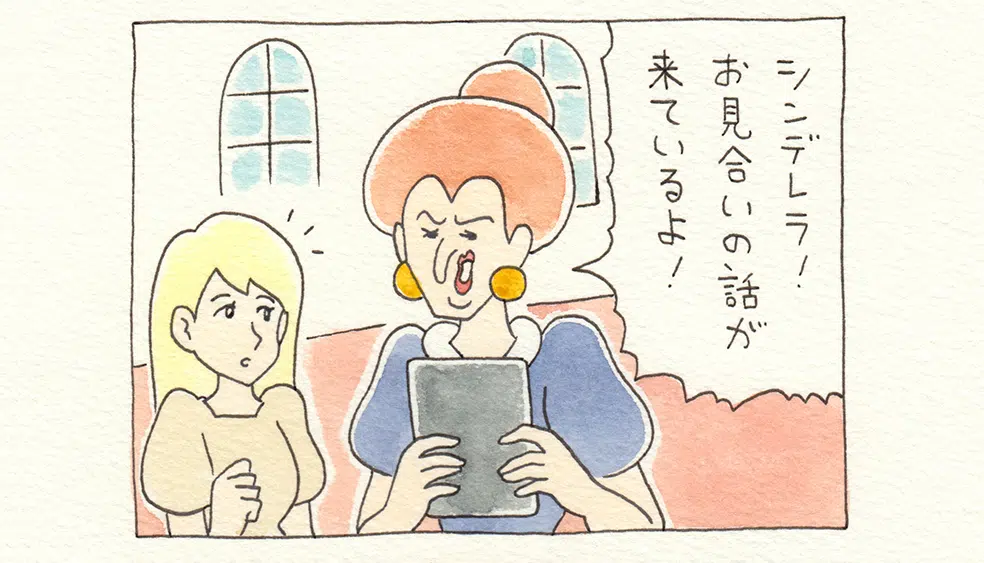 シンデレラ！
お見合いの話が
来ているよ！